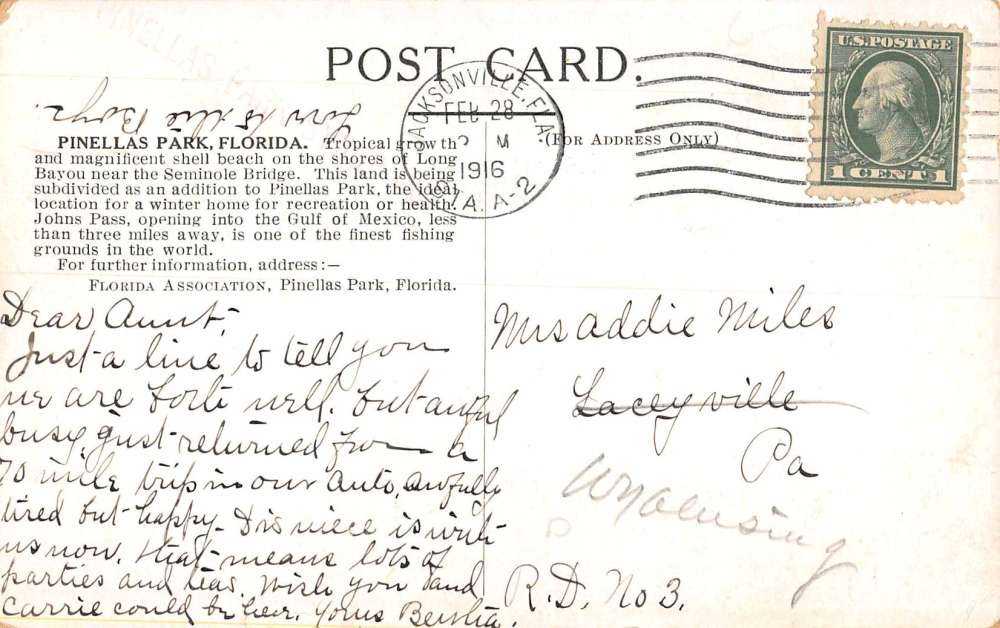 PINELLAS PARK
POST CARD.
JACKSONVILLE, FLA.
FEB 28
M
1916
STA. A-2
U.S. POSTAGE
1 CENT 1
(FOR ADDRESS ONLY)
Love to the Boys.
PINELLAS PARK, FLORIDA. Tropical growth
and magnificent shell beach on the shores of Long
Bayou near the Seminole Bridge. This land is being
subdivided as an addition to Pinellas Park, the ideal
location for a winter home for recreation or health.
Johns Pass, opening into the Gulf of Mexico, less
than three miles away, is one of the finest fishing
grounds in the world.
For further information, address:—
FLORIDA ASSOCIATION, Pinellas Park, Florida.
Dear Aunt,
Just a line to tell you
we are both well. but awful
busy, just returned from a
70 mile trip in our auto, awfully
tired but happy. D is niece is with
us now. that means lots of
parties and teas. Wish you and
Carrie could be here. Yours Bertha.
Mrs Addie Miles
Laceyville
Pa
Wyalusing
R.D. No 3.